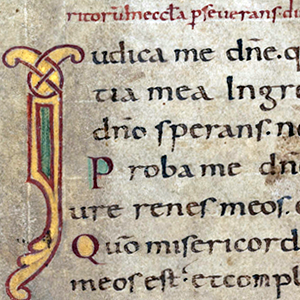 ritorū in eccl̄a pseverans. di
Iudica me dn̄e. q
tia mea Ingre
dn̄o sperans. n
Proba me dn
ure renes meos.
Quō misericord
meos est; et comp